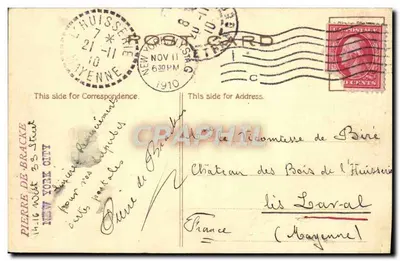 L'HUISSERIE
7 *
21 - 11
10
MAYENNE
POST CARD
NEW YORK
NOV 11
6 30 PM
1910
This side for Correspondence.
This side for Address.
PIERRE DE BRACKE
14-16 West 33 Street
NEW YORK CITY
pour vos
cartes postales
Pierre de Bracke
Vicomtesse de Biré
Château des Bois de l'Huisserie
lès Laval
France
(Mayenne)
Delcampe